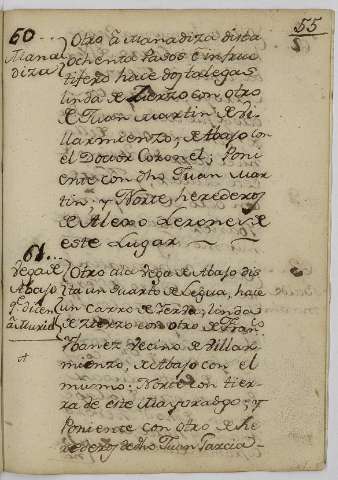 55
60...
Manal
diza
Otro â Manadiza dista
ochenta Pasos è infruc
tifero hace dos taleg.s
linda de Zierzo con otro
de Juan Martin de Vi
llarmienzo, de Abajo con
el Doctor Coronel; Poni
ente con dho Juan Mar
tin: y Norte herederos
de Alexo Zerone de
este Lugar
61...
Vega de
Abajo
q.e dicen
â Muriel
Otro ala Vega de Abajo dis
ta un quarto de Legua, hace
un Carro de Yerba, linda
de Zierzo con otro de Fran.co
Ybanez Vecino de Villar
mienzo, de Abajo con el
mismo: Norte con tier
ra de este Mayorazgo; y
Poniente con otro de He
rederos de dho Juan Garcia